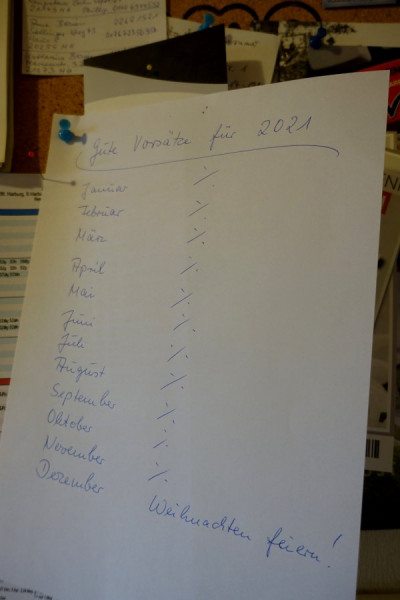 Gute Vorsätze für 2021
Januar ·/.
Februar ·/.
März ·/.
April ·/.
Mai ·/.
Juni ·/.
Juli ·/.
August ·/.
September ·/.
Oktober ·/.
November ·/.
Dezember
Weihnachten feiern!